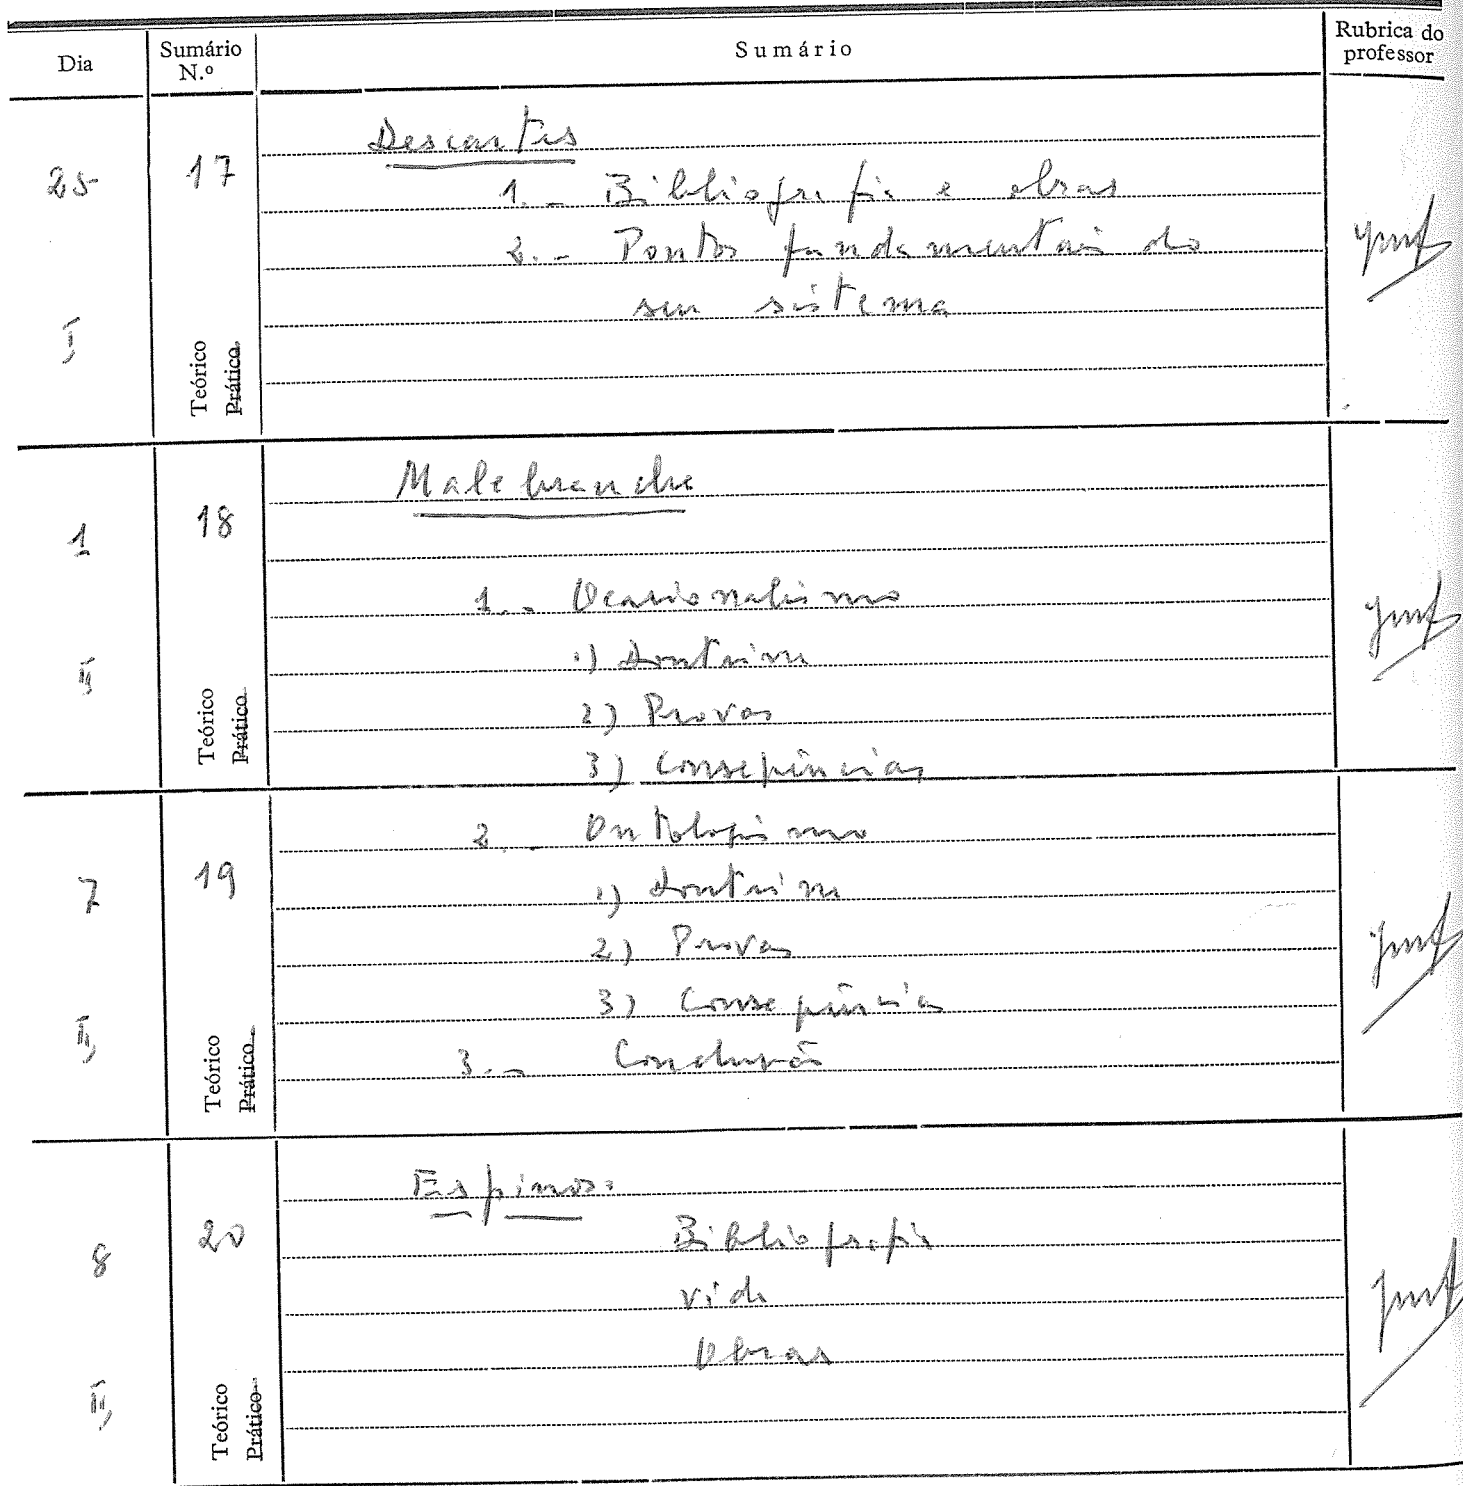 Dia
Sumário N.º
Sumário
Rubrica do professor
25
I
17
Teórico
Prático
Descartes
1. - Bibliografia e obras
2. - Pontos fundamentais do
seu sistema
1
II
18
Teórico
Prático
Malebranche
1. - Ocasionalismo
1) Doutrina
2) Provas
3) Consequências
7
II
19
Teórico
Prático
2. - Ontologismo
1) Doutrina
2) Provas
3) Consequências
3. - Conclusão
8
II
20
Teórico
Prático
Espinosa
Bibliografia
Vida
Obras